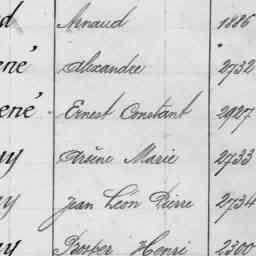 Arnaud 1886
ené Alexandre 2732
ené Ernest Constant 2927
y Arsène Marie 2733
y Jean Léon Pierre 2734
y Prosper Henri 2300